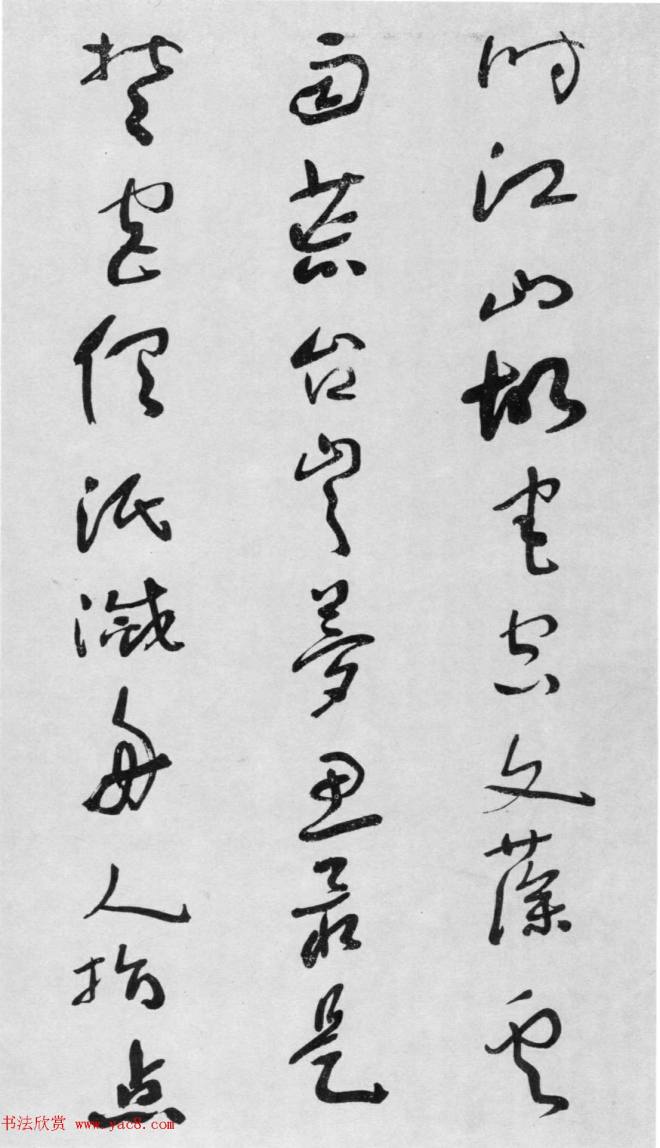 时江山故宅空文藻云
雨荒台岂梦思最是
楚宫俱泯灭舟人指点
书法欣赏 www.yac8.com